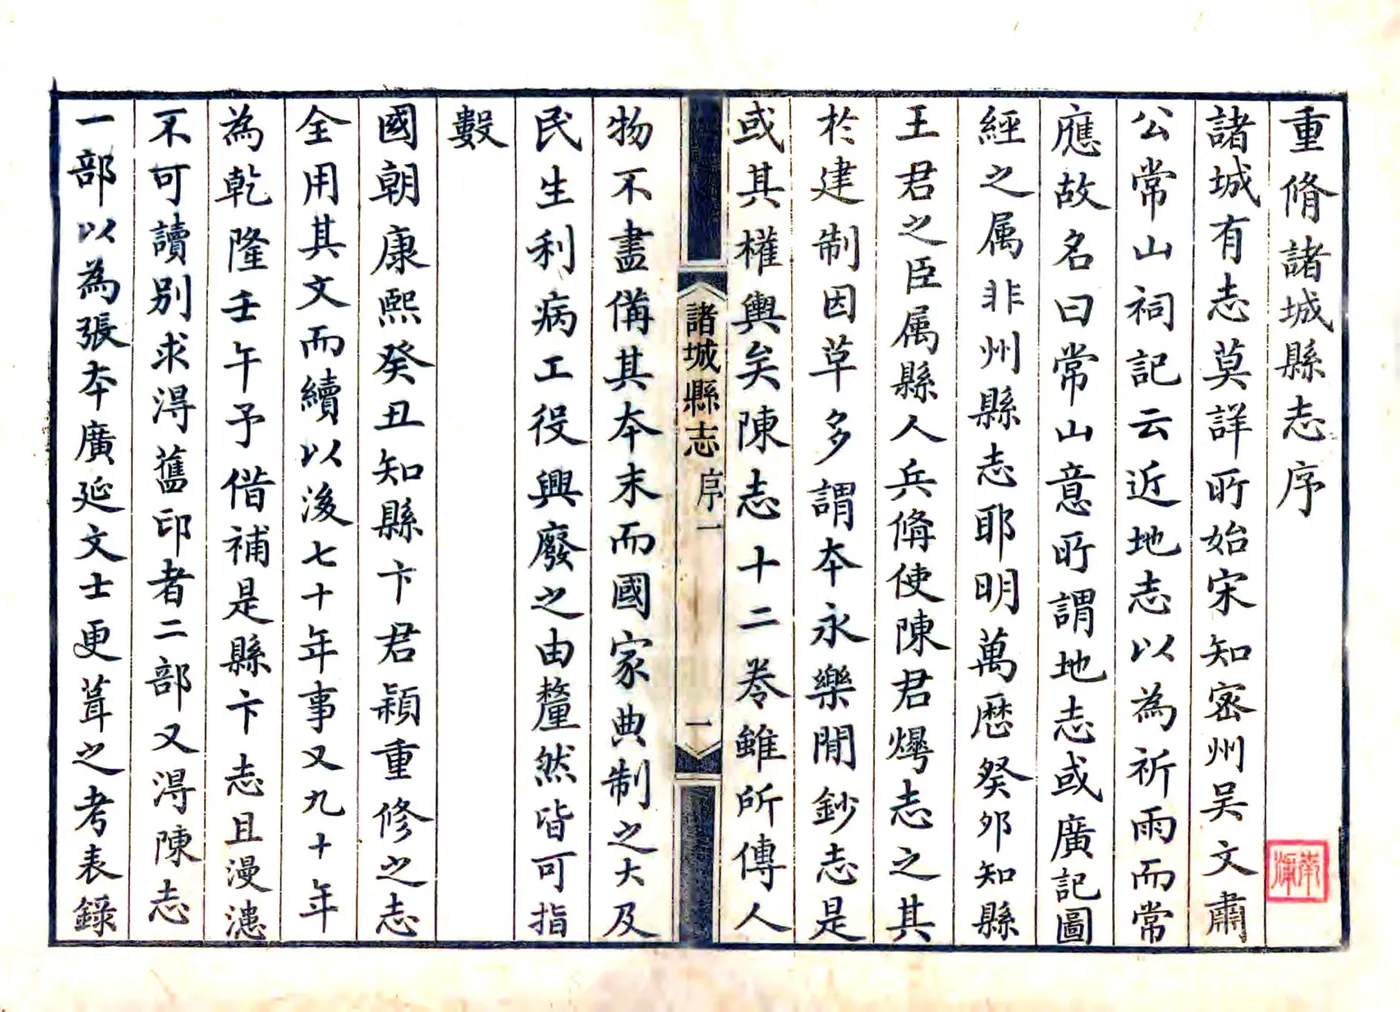 重脩諸城縣志序
諸城有志莫詳所始宋知密州吴文肅
公常山祠記云近地志以為祈雨而常
應故名曰常山意所謂地志或廣記圖
經之属非州縣志耶明萬厯癸夘知縣
王君之臣属縣人兵俻使陳君爗志之其
於建制因草多謂夲永樂閒鈔志是
或其權輿矣陳志十二卷雖所傳人
諸城縣志
序一
一
物不盡俻其夲末而國家典制之大及
民生利病工役興廢之由釐然皆可指
數
國朝康熙癸丑知縣卞君穎重修之志
全用其文而續以後七十年事又九十年
為乾隆壬午予借補是縣卞志且漫漶
不可讀別求淂舊印者二部又淂陳志
一部以為張夲廣延文士更葺之考表錄